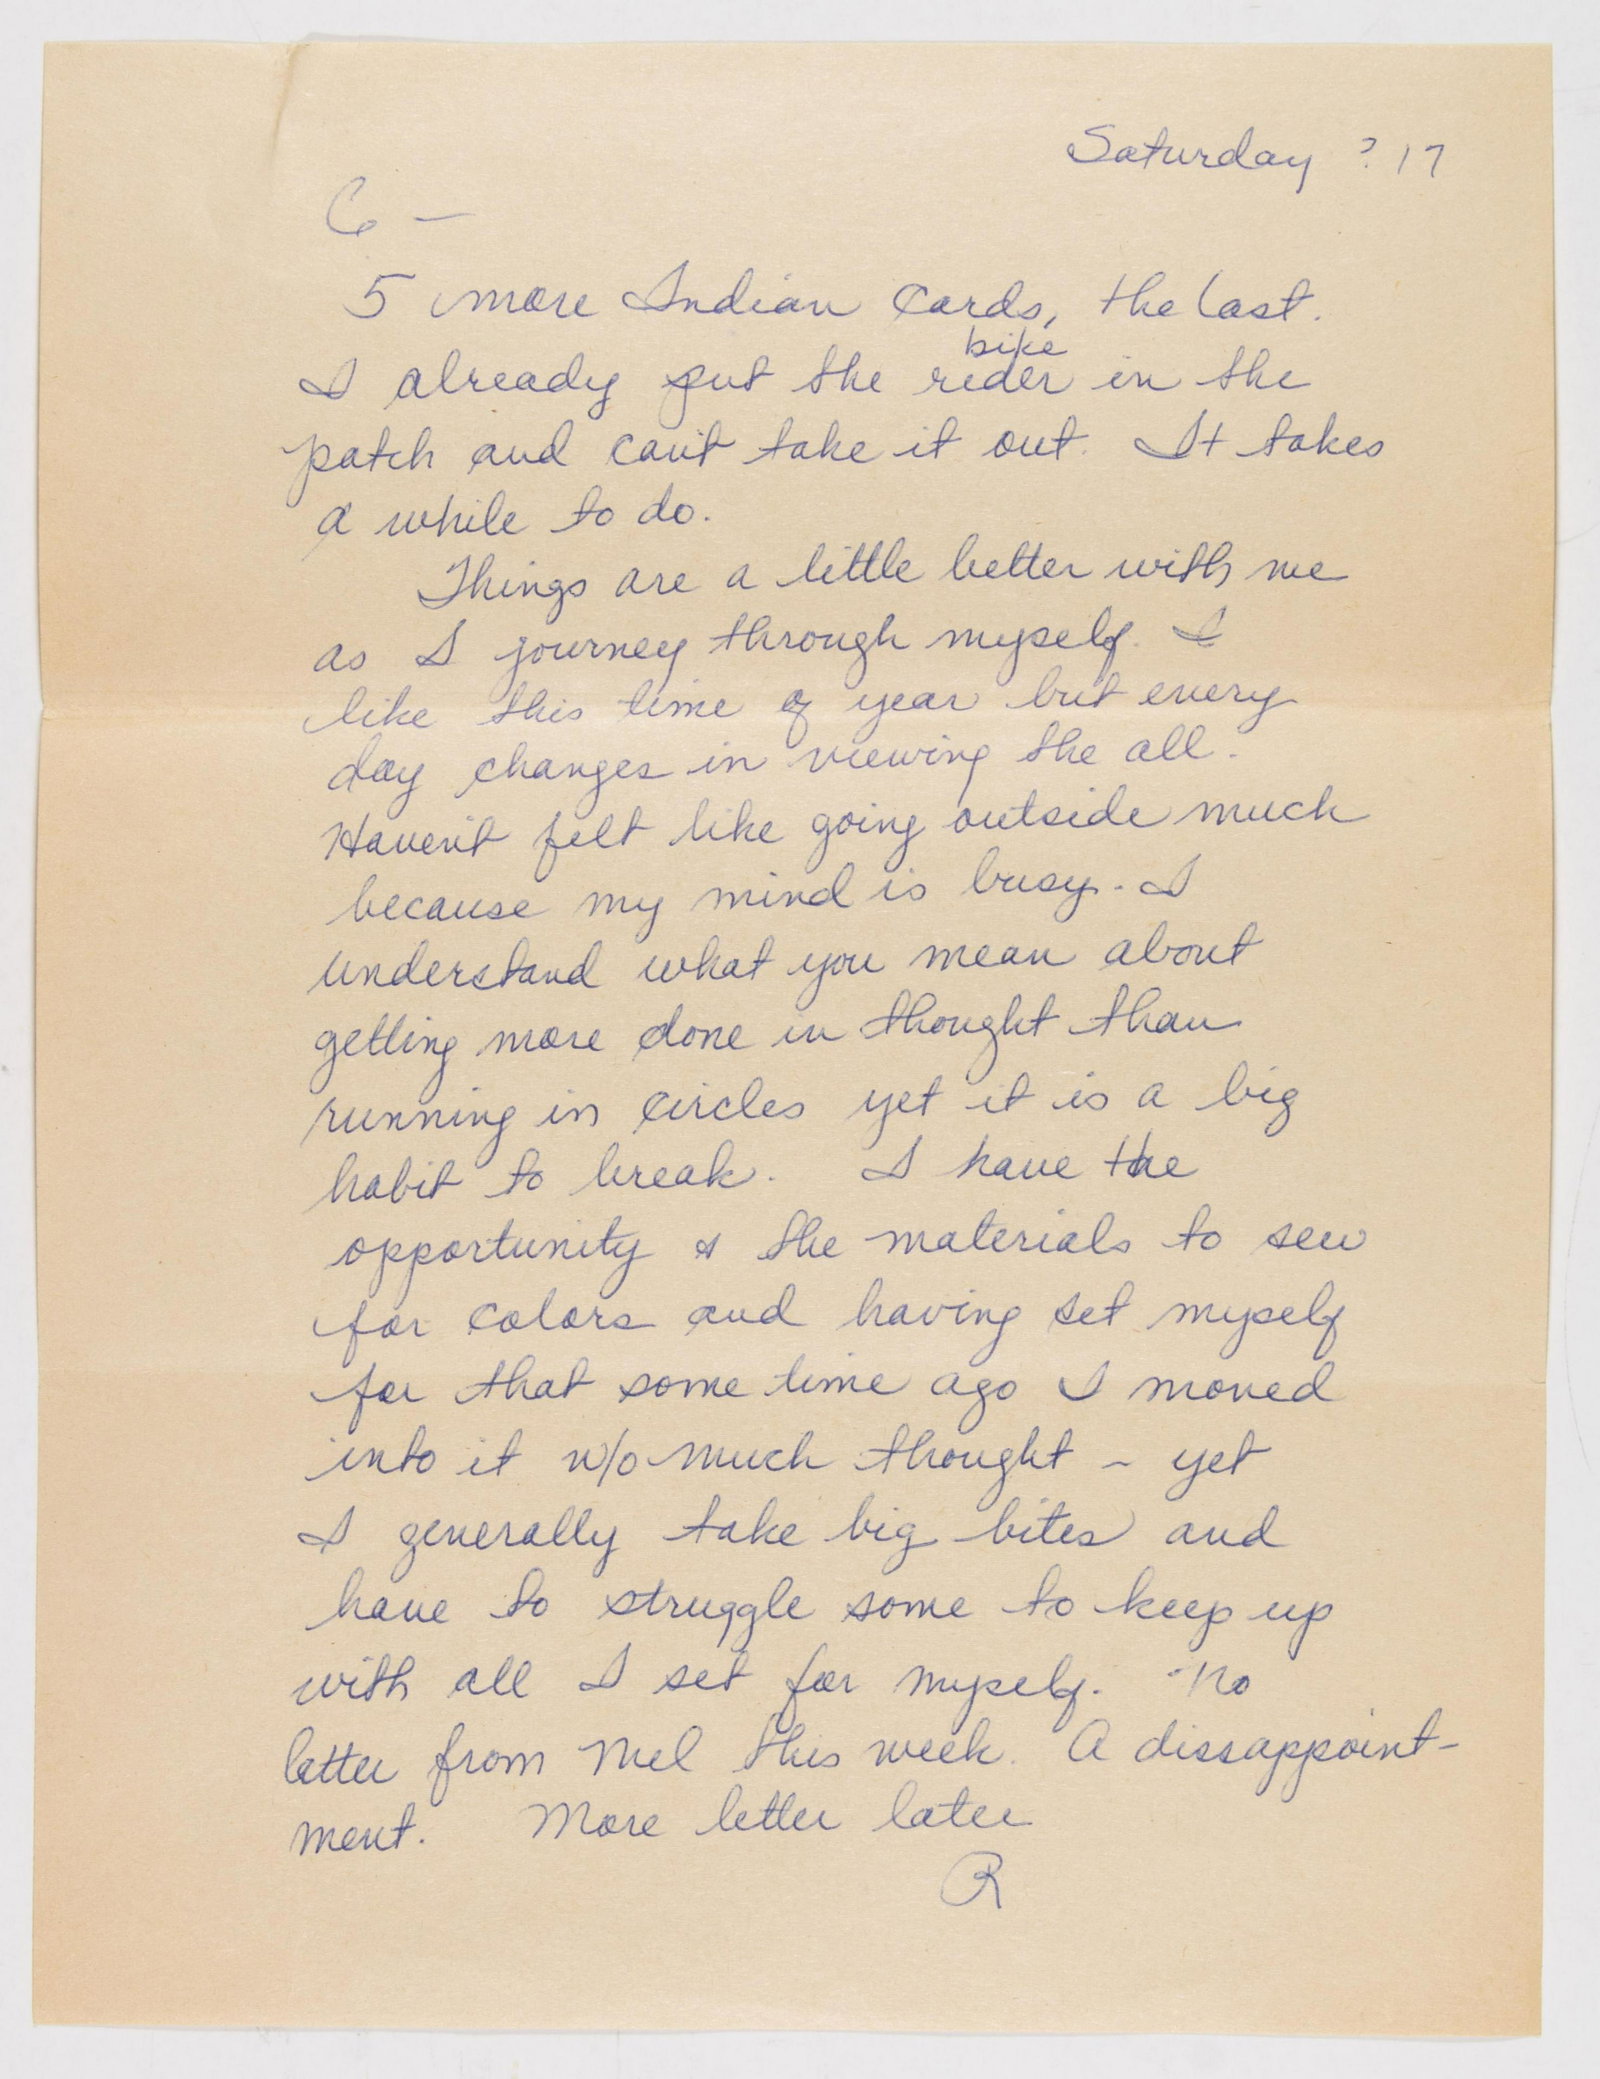 Saturday ? 17
C —
5 more Indian Cards, the last.
bike
I already put the rider in the
patch and can't take it out. It takes
a while to do.
Things are a little better with me
as I journey through myself. I
like this time of year but every
day changes in viewing the all.
Haven't felt like going outside much
because my mind is busy. I
understand what you mean about
getting more done in thought than
running in circles yet it is a big
habit to break. I have the
opportunity & the materials to sew
for colors and having set myself
for that some time ago I moved
into it w/o much thought – yet
I generally take big bites and
have to struggle some to keep up
with all I set for myself. No
letter from Mel this week. A dissappoint-
ment. More letter later
R